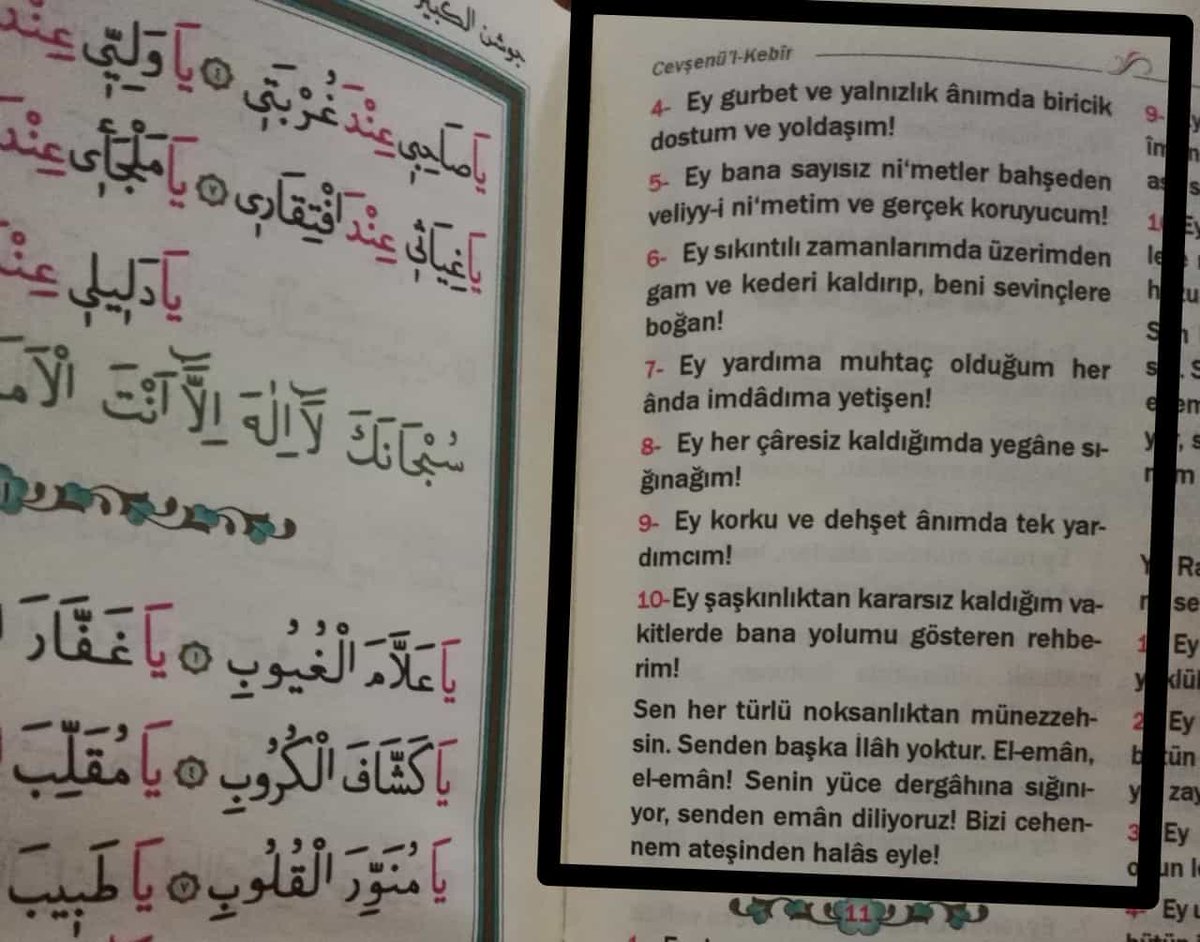 جوشن الكبير
يَا صَاحِبِي عِنْدَ غُرْبَتِي ٤ يَا وَلِيِّي عِنْدَ
يَا غِيَاثِي عِنْدَ افْتِقَارِي ٧ يَا مَلْجَأِي عِنْدَ
يَا دَلِيلِي عِنْدَ
سُبْحَانَكَ لَا إِلٰهَ إِلَّا أَنْتَ الْاَمَ
يَا عَلَّامَ الْغُيُوبِ ١ يَا غَفَّارَ
يَا كَشَّافَ الْكُرُوبِ ٤ يَا مُقَلِّبَ
يَا مُنَوِّرَ الْقُلُوبِ ٧ يَا طَبِيبَ
Cevşenü'l-Kebîr
4- Ey gurbet ve yalnızlık ânımda biricik
dostum ve yoldaşım!
5- Ey bana sayısız ni'metler bahşeden
veliyy-i ni'metim ve gerçek koruyucum!
6- Ey sıkıntılı zamanlarımda üzerimden
gam ve kederi kaldırıp, beni sevinçlere
boğan!
7- Ey yardıma muhtaç olduğum her
ânda imdâdıma yetişen!
8- Ey her çâresiz kaldığımda yegâne sı-
ğınağım!
9- Ey korku ve dehşet ânımda tek yar-
dımcım!
10-Ey şaşkınlıktan kararsız kaldığım va-
kitlerde bana yolumu gösteren rehbe-
rim!
Sen her türlü noksanlıktan münezzeh-
sin. Senden başka İlâh yoktur. El-emân,
el-emân! Senin yüce dergâhına sığını-
yor, senden emân diliyoruz! Bizi cehen-
nem ateşinden halâs eyle!
11